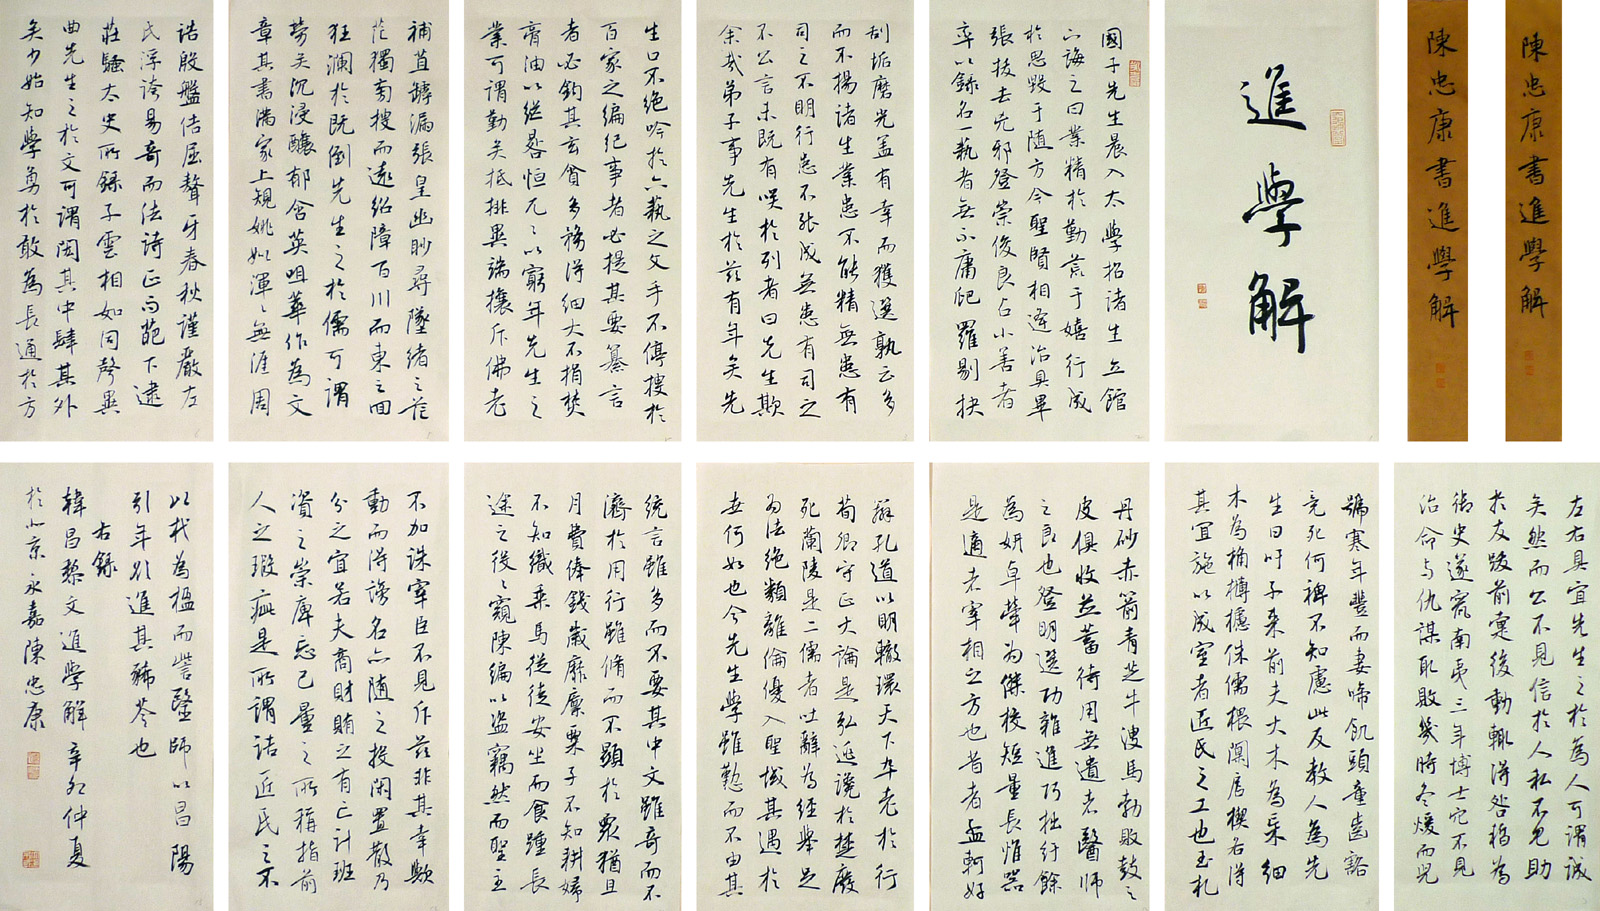 陳忠康書進學解
陳忠康書進學解
進學解
國子先生晨入太學招諸生立館
下誨之曰業精於勤荒于嬉行成
於思毀于隨方今聖賢相逢治具畢
張拔去兇邪登崇俊良占小善者
率以錄名一藝者無不庸爬羅剔抉
刮垢磨光蓋有幸而獲選孰云多
而不揚諸生業患不能精無患有
司之不明行患不能成無患有司之
不公言未既有咲於列者曰先生欺
余哉弟子事先生於茲有年矣先
生口不絕吟於六藝之文手不停披於
百家之編紀事者必提其要纂言
者必鈎其玄貪多務得細大不捐焚
膏油以繼晷恒兀〻以窮年先生之
業可謂勤矣抵排異端攘斥佛老
補苴罅漏張皇幽眇尋墜緒之茫
茫獨旁搜而遠紹障百川而東之回
狂瀾於既倒先生之於儒可謂
勞矣沉浸醲郁含英咀華作為文
章其書滿家上規姚姒渾〻無涯周
誥殷盤佶屈聱牙春秋謹嚴左
氏浮誇易奇而法詩正而葩下逮
莊騷太史所錄子雲相如同聲異
曲先生之於文可謂閎其中肆其外
矣少始知學勇於敢為長通於方
左右具宜先生之於為人可謂誠
矣然而公不見信於人私不見助
於友跋前疐後動輒得咎稍為
御史遂竄南夷三年博士冗不見
治命與仇謀取敗幾時冬煖而兒
號寒年豐而妻啼飢頭童齒豁
竟死何裨不知慮此反教人為先
生曰吁子來前夫大木為杗細
木為桷欂櫨侏儒椳闑扂楔各得
其宜施以成室者匠氏之工也玉札
丹砂赤箭青芝牛溲馬勃敗鼓之
皮俱收並蓄待用無遺者醫師
之良也登明選公雜進巧拙紆餘
為妍卓犖為傑校短量長惟器
是適者宰相之方也昔者孟軻好
辯孔道以明轍環天下卒老於行
荀卿守正大論是弘逃讒於楚廢
死蘭陵是二儒者吐辭為經舉足
為法絕類離倫優入聖域其遇於
世何如也今先生學雖勤而不由其
統言雖多而不要其中文雖奇而不
濟於用行雖脩而不顯於眾猶且
月費俸錢歲靡廩粟子不知耕婦
不知織乘馬從徒安坐而食踵長
途之役〻窺陳編以盜竊然而聖主
不加誅宰臣不見斥茲非其幸歟
動而得謗名亦隨之投閑置散乃
分之宜若夫商財賄之有亡計班
資之崇庳忘己量之所稱指前
人之瑕疵是所謂詰匠氏之不
以杙為楹而訾醫師以昌陽
引年欲進其豨苓也
右錄
韓昌黎文進學解辛卯仲夏
於北京永嘉陳忠康